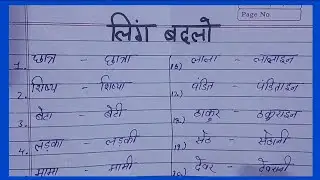 Page No
लिंग बदलो
1. छात्र - छात्रा
2. शिष्य - शिष्या
3. बेटा - बेटी
4. लड़का - लड़की
मामा - मामी
16) लाला - ललाइन
17) पंडित - पंडिताइन
18) ठाकुर - ठकुराइन
19) सेठ - सेठानी
20) देवर - देवरानी